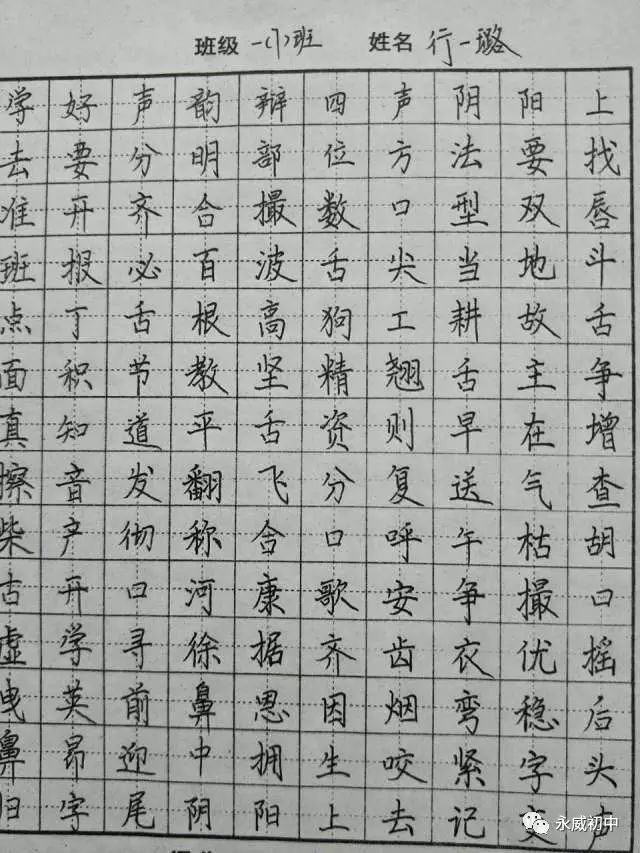 班级 一(1)班 姓名 行一璐
学好声韵辩四声阴阳上
去要分明部位方法要找
准开齐合撮数口型双唇
班报必百波舌尖当地斗
点丁舌根高狗工耕故舌
面积节教坚精翘舌主争
真知道平舌资则早在增
擦音发翻飞分复送气查
柴产彻称合口呼午枯胡
古开口河康歌安争撮口
虚学寻徐据齐齿衣优摇
曳英前鼻恩因烟弯稳后
鼻昂迎中拥生咬紧字头
归字尾阴阳上去记变声
永威初中